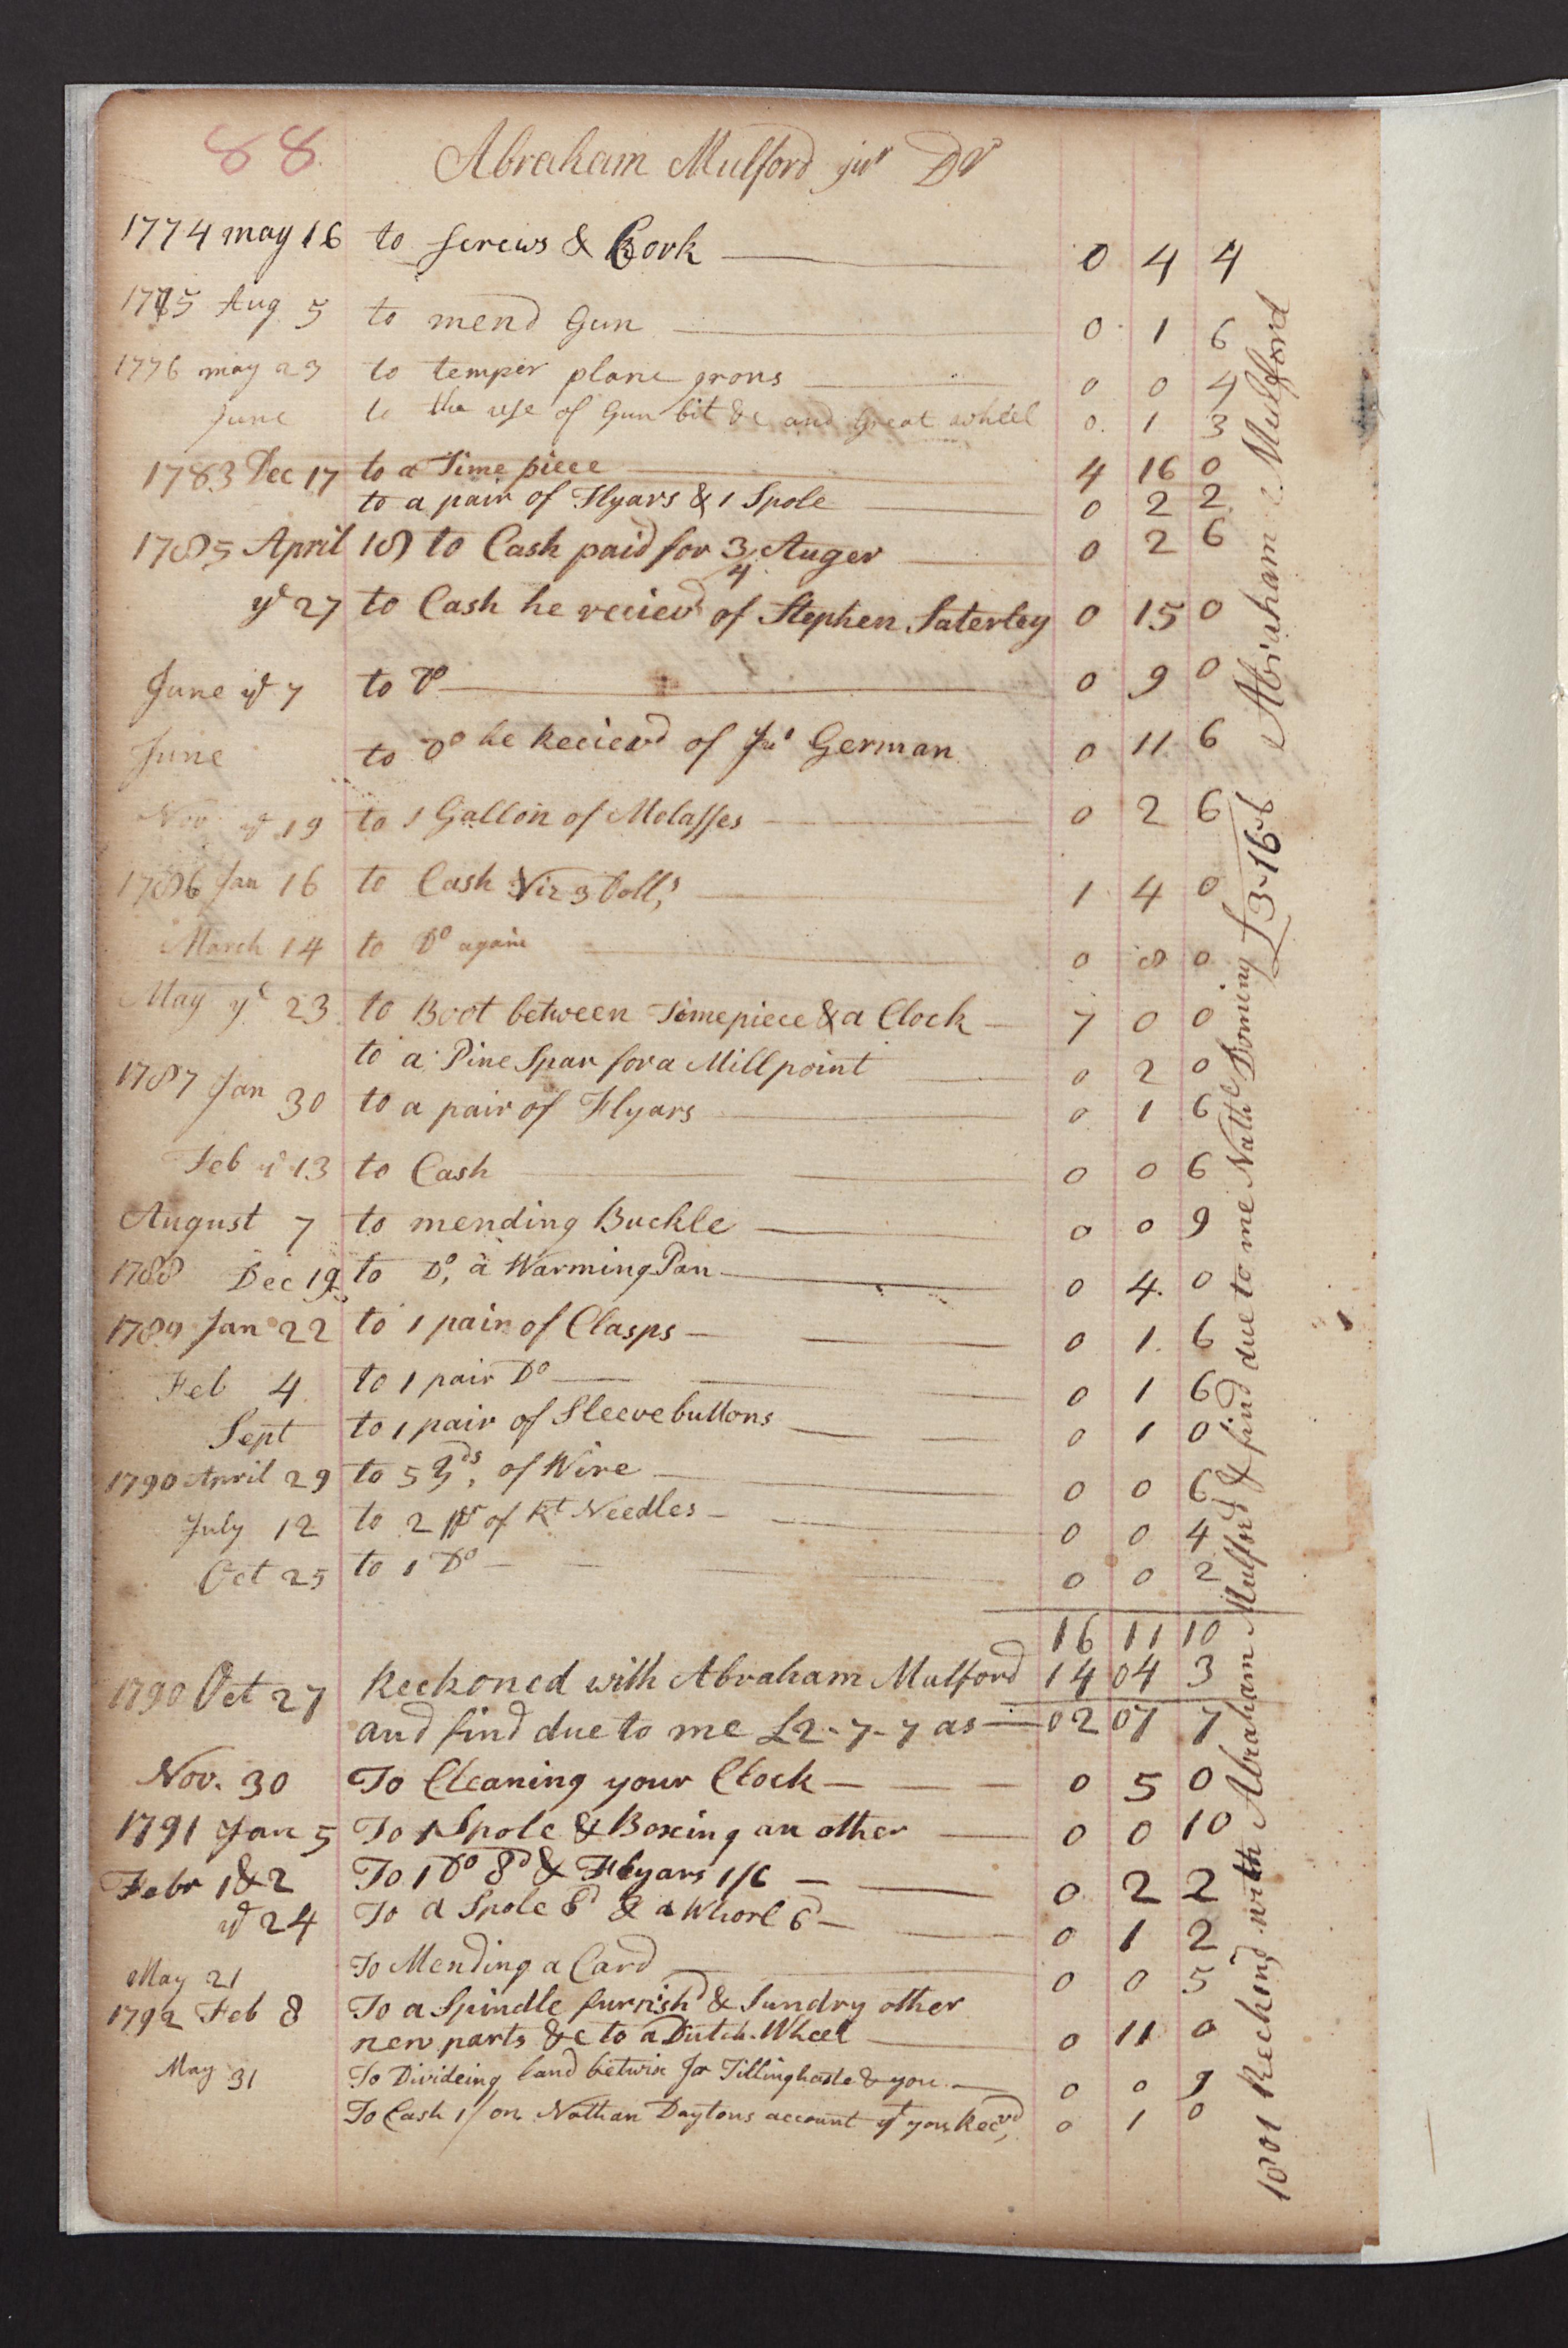 88
Abraham Mulford junr Dr
1774 may 16 to screws & Cork 0 4 4
1775 Aug 5 to mend Gun 0 1 6
1776 may 23 to temper plane yrons 0 0 4
June to the use of Gun bit &c and Great wheel 0 1 3
1783 Dec 17 to a Time piece 4 16 0
to a pair of Flyars & 1 Spole 0 2 2
1785 April 18 to Cash paid for 3/4 Auger 0 2 6
ye 27 to Cash he recievd of Stephen Saterley 0 15 0
June ye 7 to Do 0 9 0
June to Do he Recievd of Jno German 0 11 6
Nov ye 19 to 1 Gallon of Molasses 0 2 6
1786 Jan 16 to Cash Viz 3 Dolls 1 4 0
March 14 to Do again 0 8 0
May ye 23 to Boot between Timepiece & a Clock 7 0 0
to a Pine Spar for a Mill point 0 2 0
1787 Jan 30 to a pair of Flyars 0 1 6
Feb ye 13 to Cash 0 0 6
August 7 to mending Buckle 0 0 9
1788 Dec 19 to Do, a Warming Pan 0 4 0
1789 Jan 22 to 1 pair of Clasps 0 1 6
Feb 4 to 1 pair Do 0 1 6
Sept to 1 pair of Sleevebuttons 0 1 0
1790 April 29 to 5 Yds, of Wire 0 0 6
July 12 to 2 pr of Kt Needles 0 0 4
Oct 25 to 1 Do 0 0 2
16 11 10
1790 Oct 27 Reckoned with Abraham Mulford 14 04 3
and find due to me £2-7-7 as 02 07 7
Nov. 30 To Cleaning your Clock 0 5 0
1791 Jan 5 To 1 Spole & Boxing an other 0 0 10
Febr 1 & 2 To 1 Do 8d & Flyars 1/6 0 2 2
ye 24 To a Spole 8d & a Whorl 6d 0 1 2
May 21 To Mending a Card 0 0 5
1792 Feb 8 To a Spindle furnishd & Sundry other
new parts &c to a Dutch-Wheel 0 11 0
May 31 To Divideing land betwix Jo Tillinghaste & you 0 0 9
To Cash 1/ on Nathan Daytons account yt you Recvd, 0 1 0
1801 Reckind with Abraham Mulford & find due to me Nathl Dominy £3-16-6 Abraham Mulford